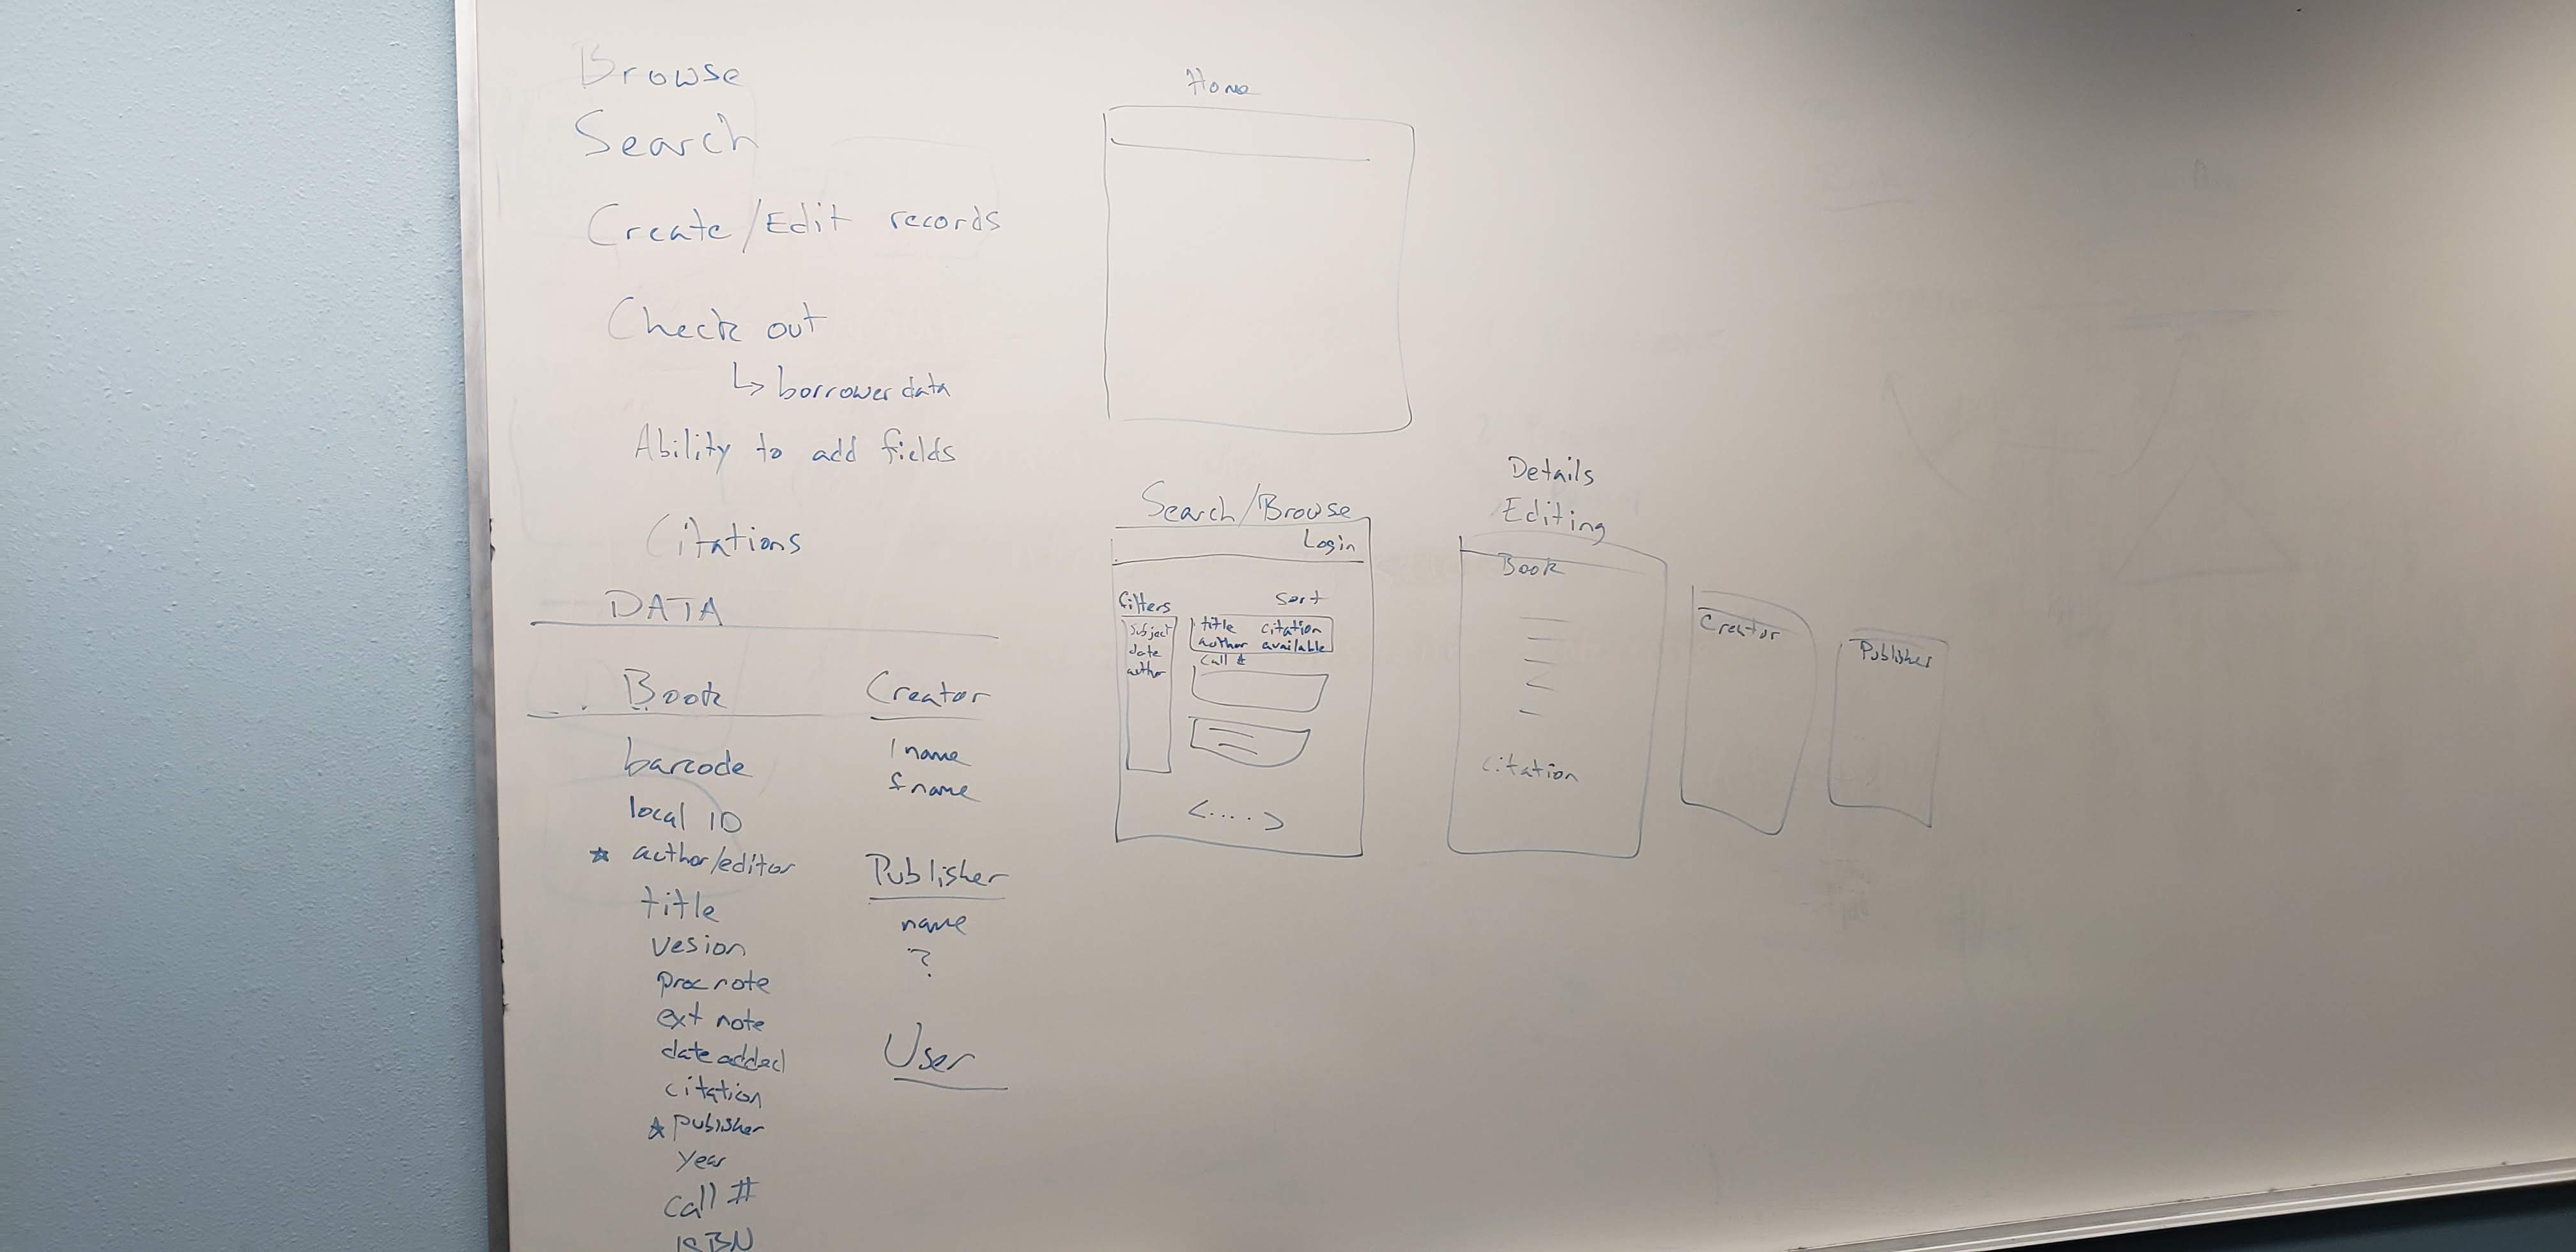 Browse
Search
Create/Edit records
Check out
↳ borrower data
Ability to add fields
Citations
DATA
Book
barcode
local ID
☆ author/editor
title
vesion
proc note
ext note
date added
citation
☆ publisher
year
call #
ISBN
Creator
lname
fname
Publisher
name
?
User
Home
Search/Browse
Login
filters
subject
date
author
sort
title citation
author available
call #
<....>
Details
Editing
Book
citation
Creator
Publisher